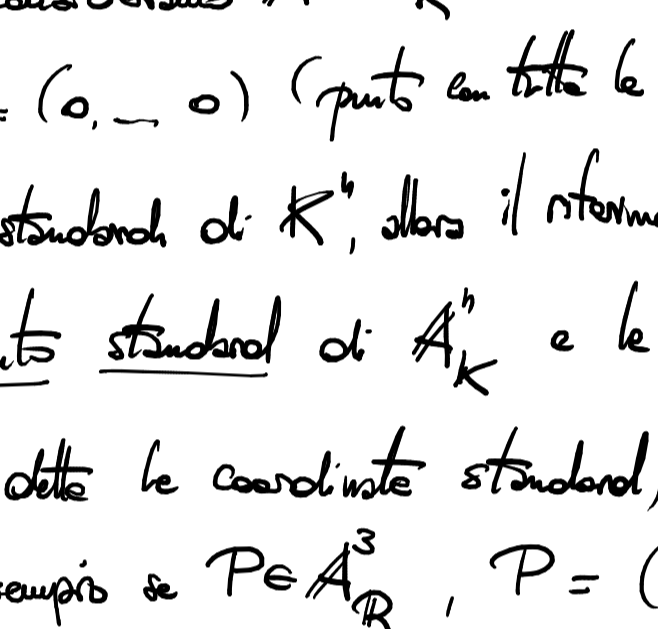 = (0, — 0) (punto con tutte le
standard di K^n, allora il riferime
to standard di A^n_K e le
dette le coordinate standard,
sempio se P ∈ A^3_R, P = (